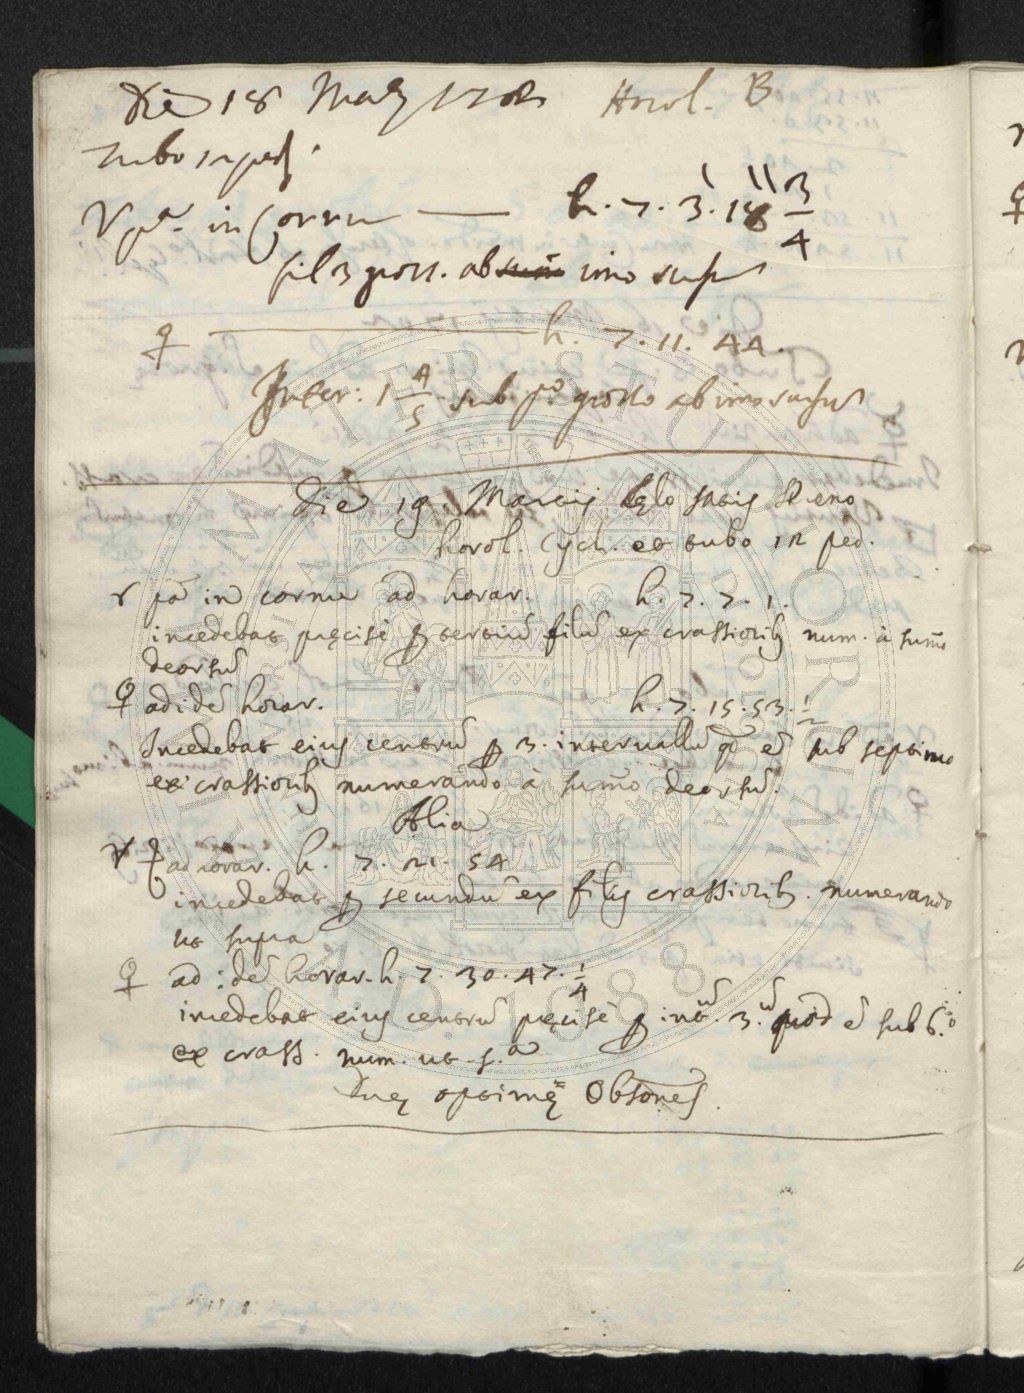 Die 18 Marzo 1702 Horol. B
Tubo 12 ped.
♈ pa. in Cornu — h. 7. 3' 18'' 3/4
filo 3 gross. ab imo sursum
♀ — h. 7. 11. 44.
Inter: 1 4/5 sub po. grosso ab imo sursum
Die 19. Martij Celo satis sereno
horol. Cycl. et tubo 12 ped.
♈ pa in cornu ad horar. h. 7. 7. 1.
incedebat precise p tertiu filu ex crassiorib num. à sumo
deorsu
♀ ad idē horar. h. 7. 15. 53. 1/2
Incedebat eius centru p 3. intervallu qd ē sub septimo
ex crassiorib numerando à sumo deorsu.
Alia
♈ ad horar. h. 7. 21. 54
incedebat p secundu ex filis crassiorib. numerando
ut supra
♀ ad idē horar. h. 7. 30. 47. 1/4
incedebat eius centru precise p int. 3. quod ē sub 6.o
ex crass. num. ut s.a
Due optime Obsones.
ALMA MATER STUDIORUM
A.D. 1088